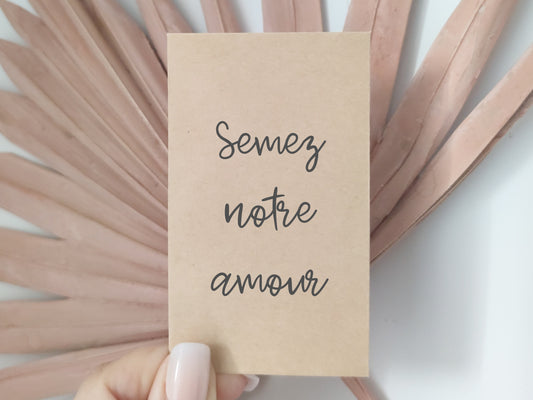 Semez
notre
amour